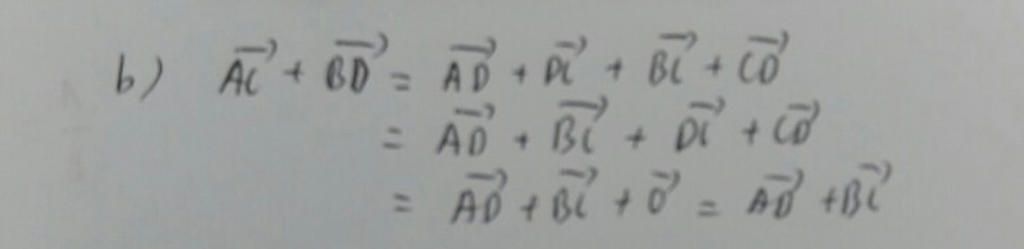 b) $\overrightarrow{AC} + \overrightarrow{BD} = \overrightarrow{AD} + \overrightarrow{DC} + \overrightarrow{BC} + \overrightarrow{CD}$
$= \overrightarrow{AD} + \overrightarrow{BC} + \overrightarrow{DC} + \overrightarrow{CD}$
$= \overrightarrow{AD} + \overrightarrow{BC} + \vec{0} = \overrightarrow{AD} + \overrightarrow{BC}$